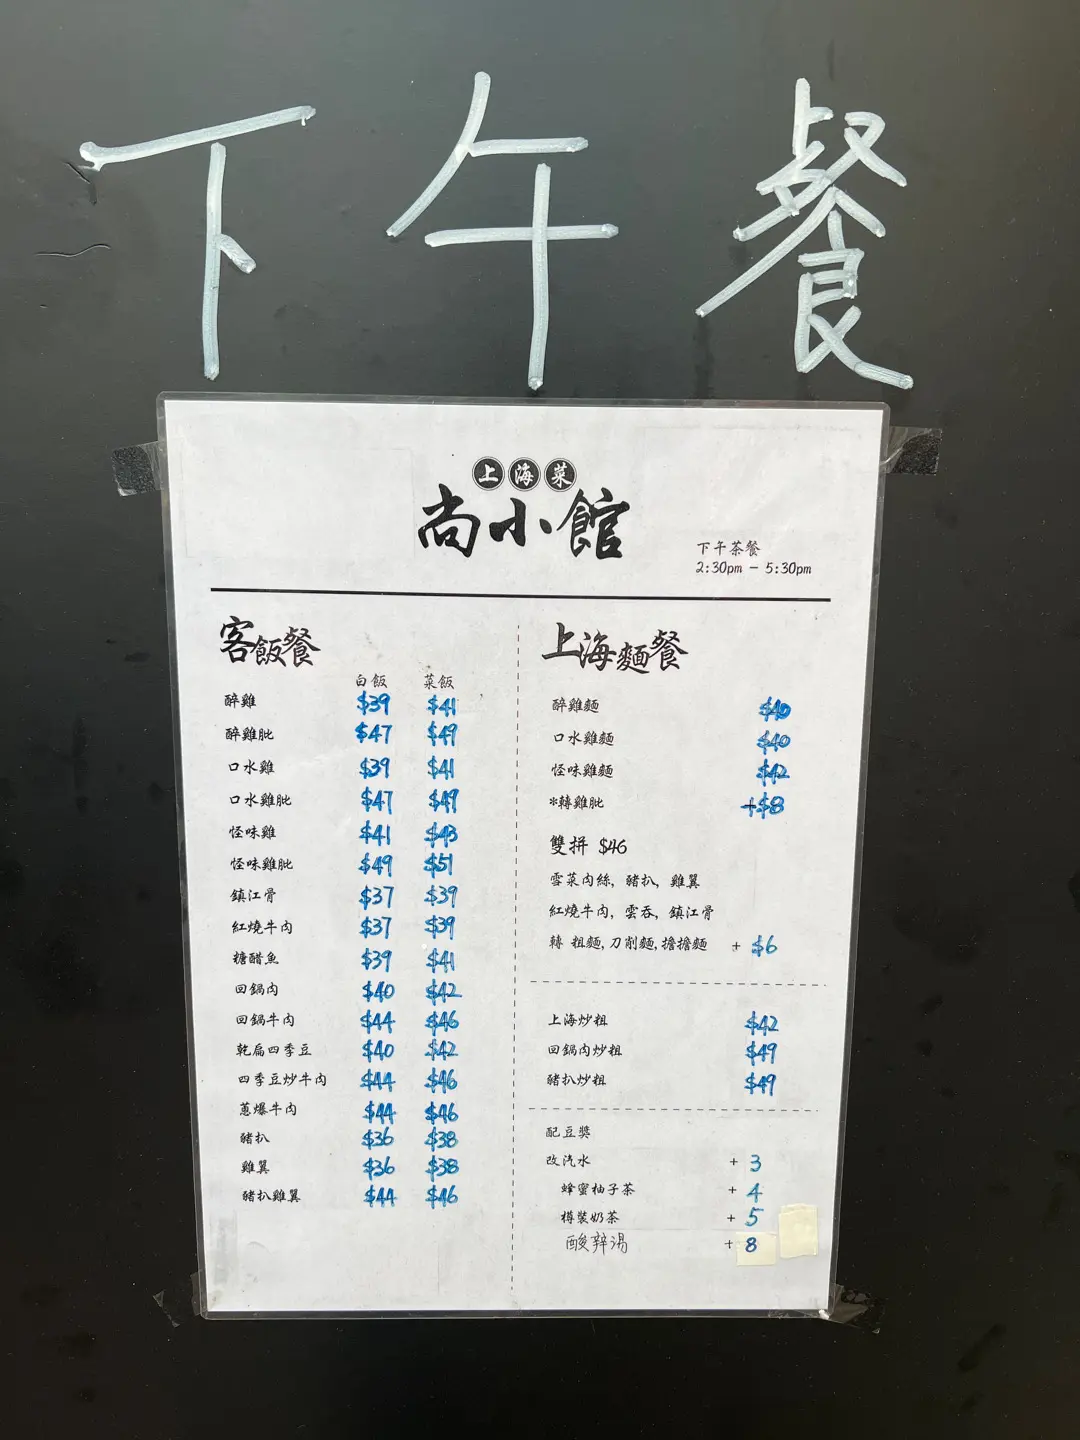 下午餐
上海菜
尚小館
下午茶餐
2:30pm - 5:30pm
客飯餐
白飯 菜飯
醉雞 $39 $41
醉雞肶 $47 $49
口水雞 $39 $41
口水雞肶 $47 $49
怪味雞 $41 $43
怪味雞肶 $49 $51
鎮江骨 $37 $39
紅燒牛肉 $37 $39
糖醋魚 $39 $41
回鍋肉 $40 $42
回鍋牛肉 $44 $46
乾扁四季豆 $40 $42
四季豆炒牛肉 $44 $46
蔥爆牛肉 $44 $46
豬扒 $36 $38
雞翼 $36 $38
豬扒雞翼 $44 $46
上海麵餐
醉雞麵 $40
口水雞麵 $40
怪味雞麵 $42
*轉雞肶 +$8
雙拼 $46
雪菜肉絲, 豬扒, 雞翼
紅燒牛肉, 雲吞, 鎮江骨
轉 粗麵, 刀削麵, 擔擔麵 + $6
上海炒粗 $42
回鍋肉炒粗 $49
豬扒炒粗 $49
配豆獎
改汽水 + 3
蜂蜜柚子茶 + 4
樽裝奶茶 + 5
酸辣湯 + 8